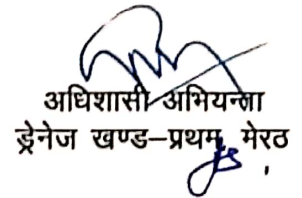 अधिशासी अभियन्ता
ड्रेनेज खण्ड–प्रथम, मेरठ